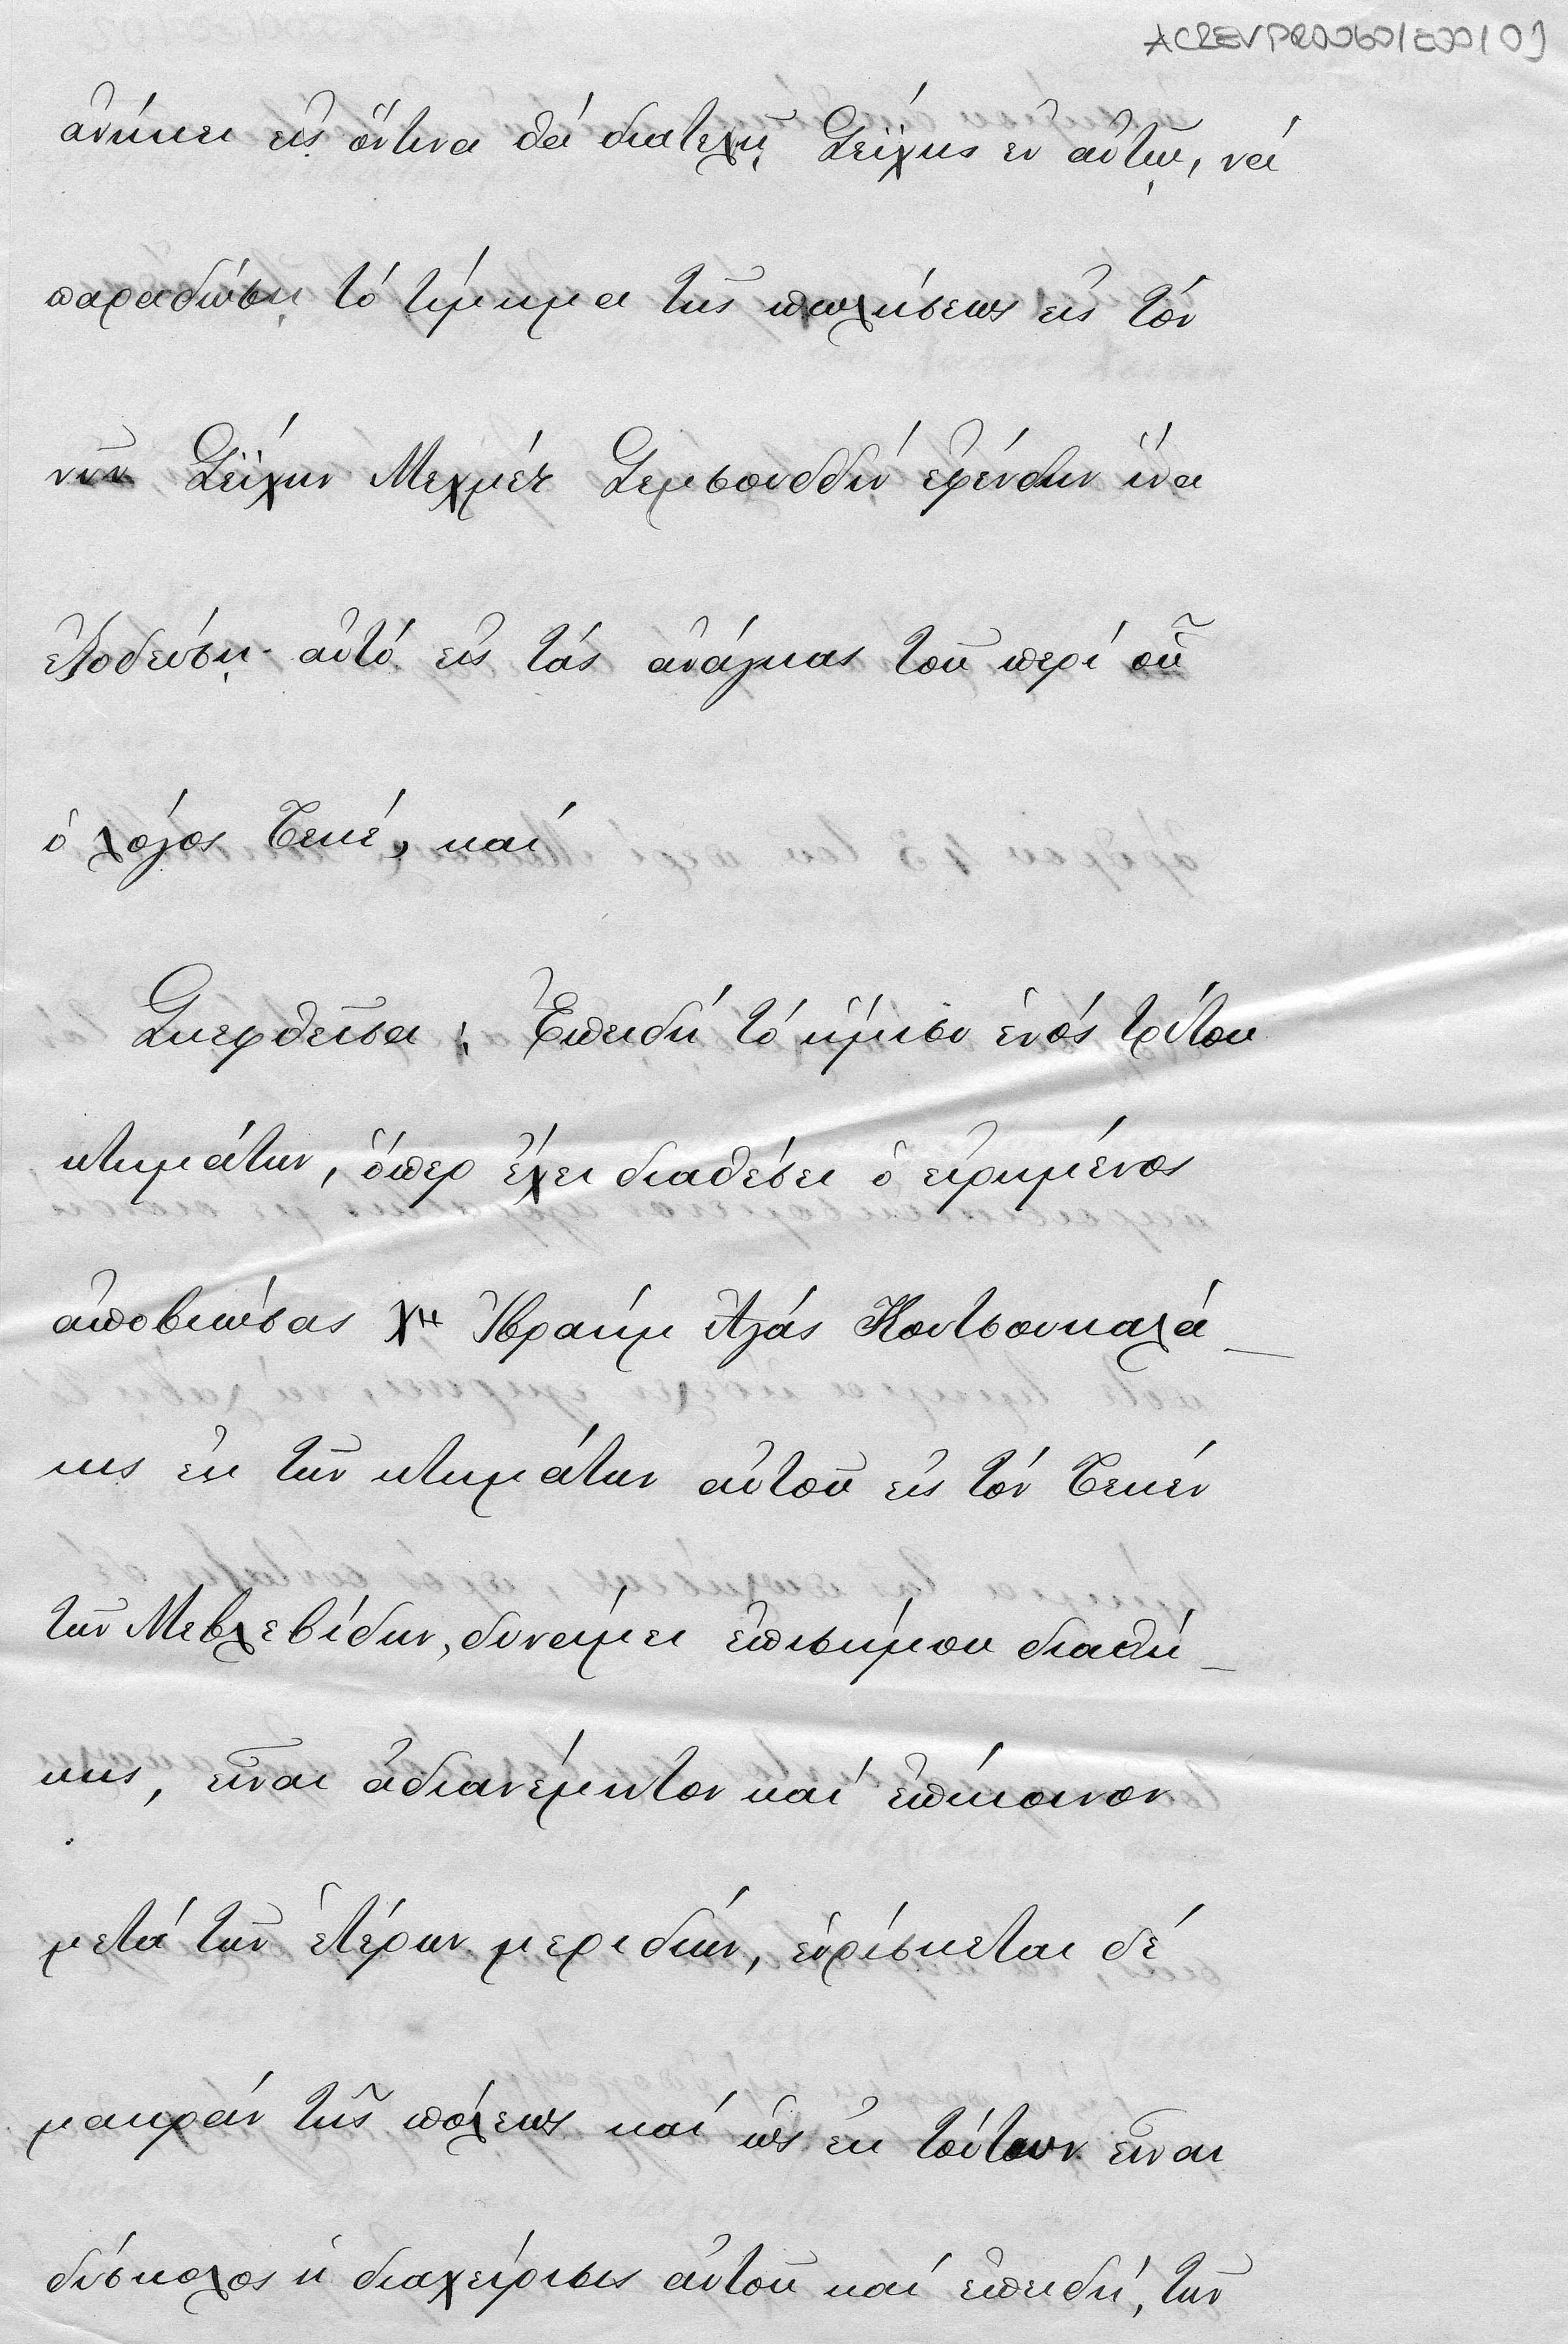 ACREVPR0060/E00/09
ἀνήκει εἰς ὅντινα θά διατελῇ Σεΐχης ἐν αὐτῷ, νά
παραδώσῃ τό τίμημα τῆς πωλήσεως εἰς τόν
νῦν Σεΐχην Μεχμέτ Σεμσουδδίν ἐφένδην ἵνα
ἐξοδεύσῃ αὐτό εἰς τάς ἀνάγκας τοῦ περί οὗ
ὁ λόγος Τεκέ, καί
Σκεφθεῖσα : Ἐπειδή τό ἥμισυ ἑνός τρίτου
κτημάτων, ὅπερ ἔχει διαθέσει ὁ εἰρημένος
ἀποβιώσας Χη Ἰβραήμ Ἀγάς Κουτσουκαλά_
κις ἐκ τῶν κτημάτων αὐτοῦ εἰς τόν Τεκέν
τῶν Μεβλεβίδων, δυνάμει ἐπισήμου διαθή_
κης, εἶναι ἀδιανέμητον καί ἐπίκοινον
μετά τῶν ἑτέρων μεριδίων, εὑρίσκεται δέ
μακράν τῆς πόλεως καί ὡς ἐκ τούτου εἶναι
δύσκολος ἡ διαχείρισις αὐτοῦ καί ἐπειδή, τῶν